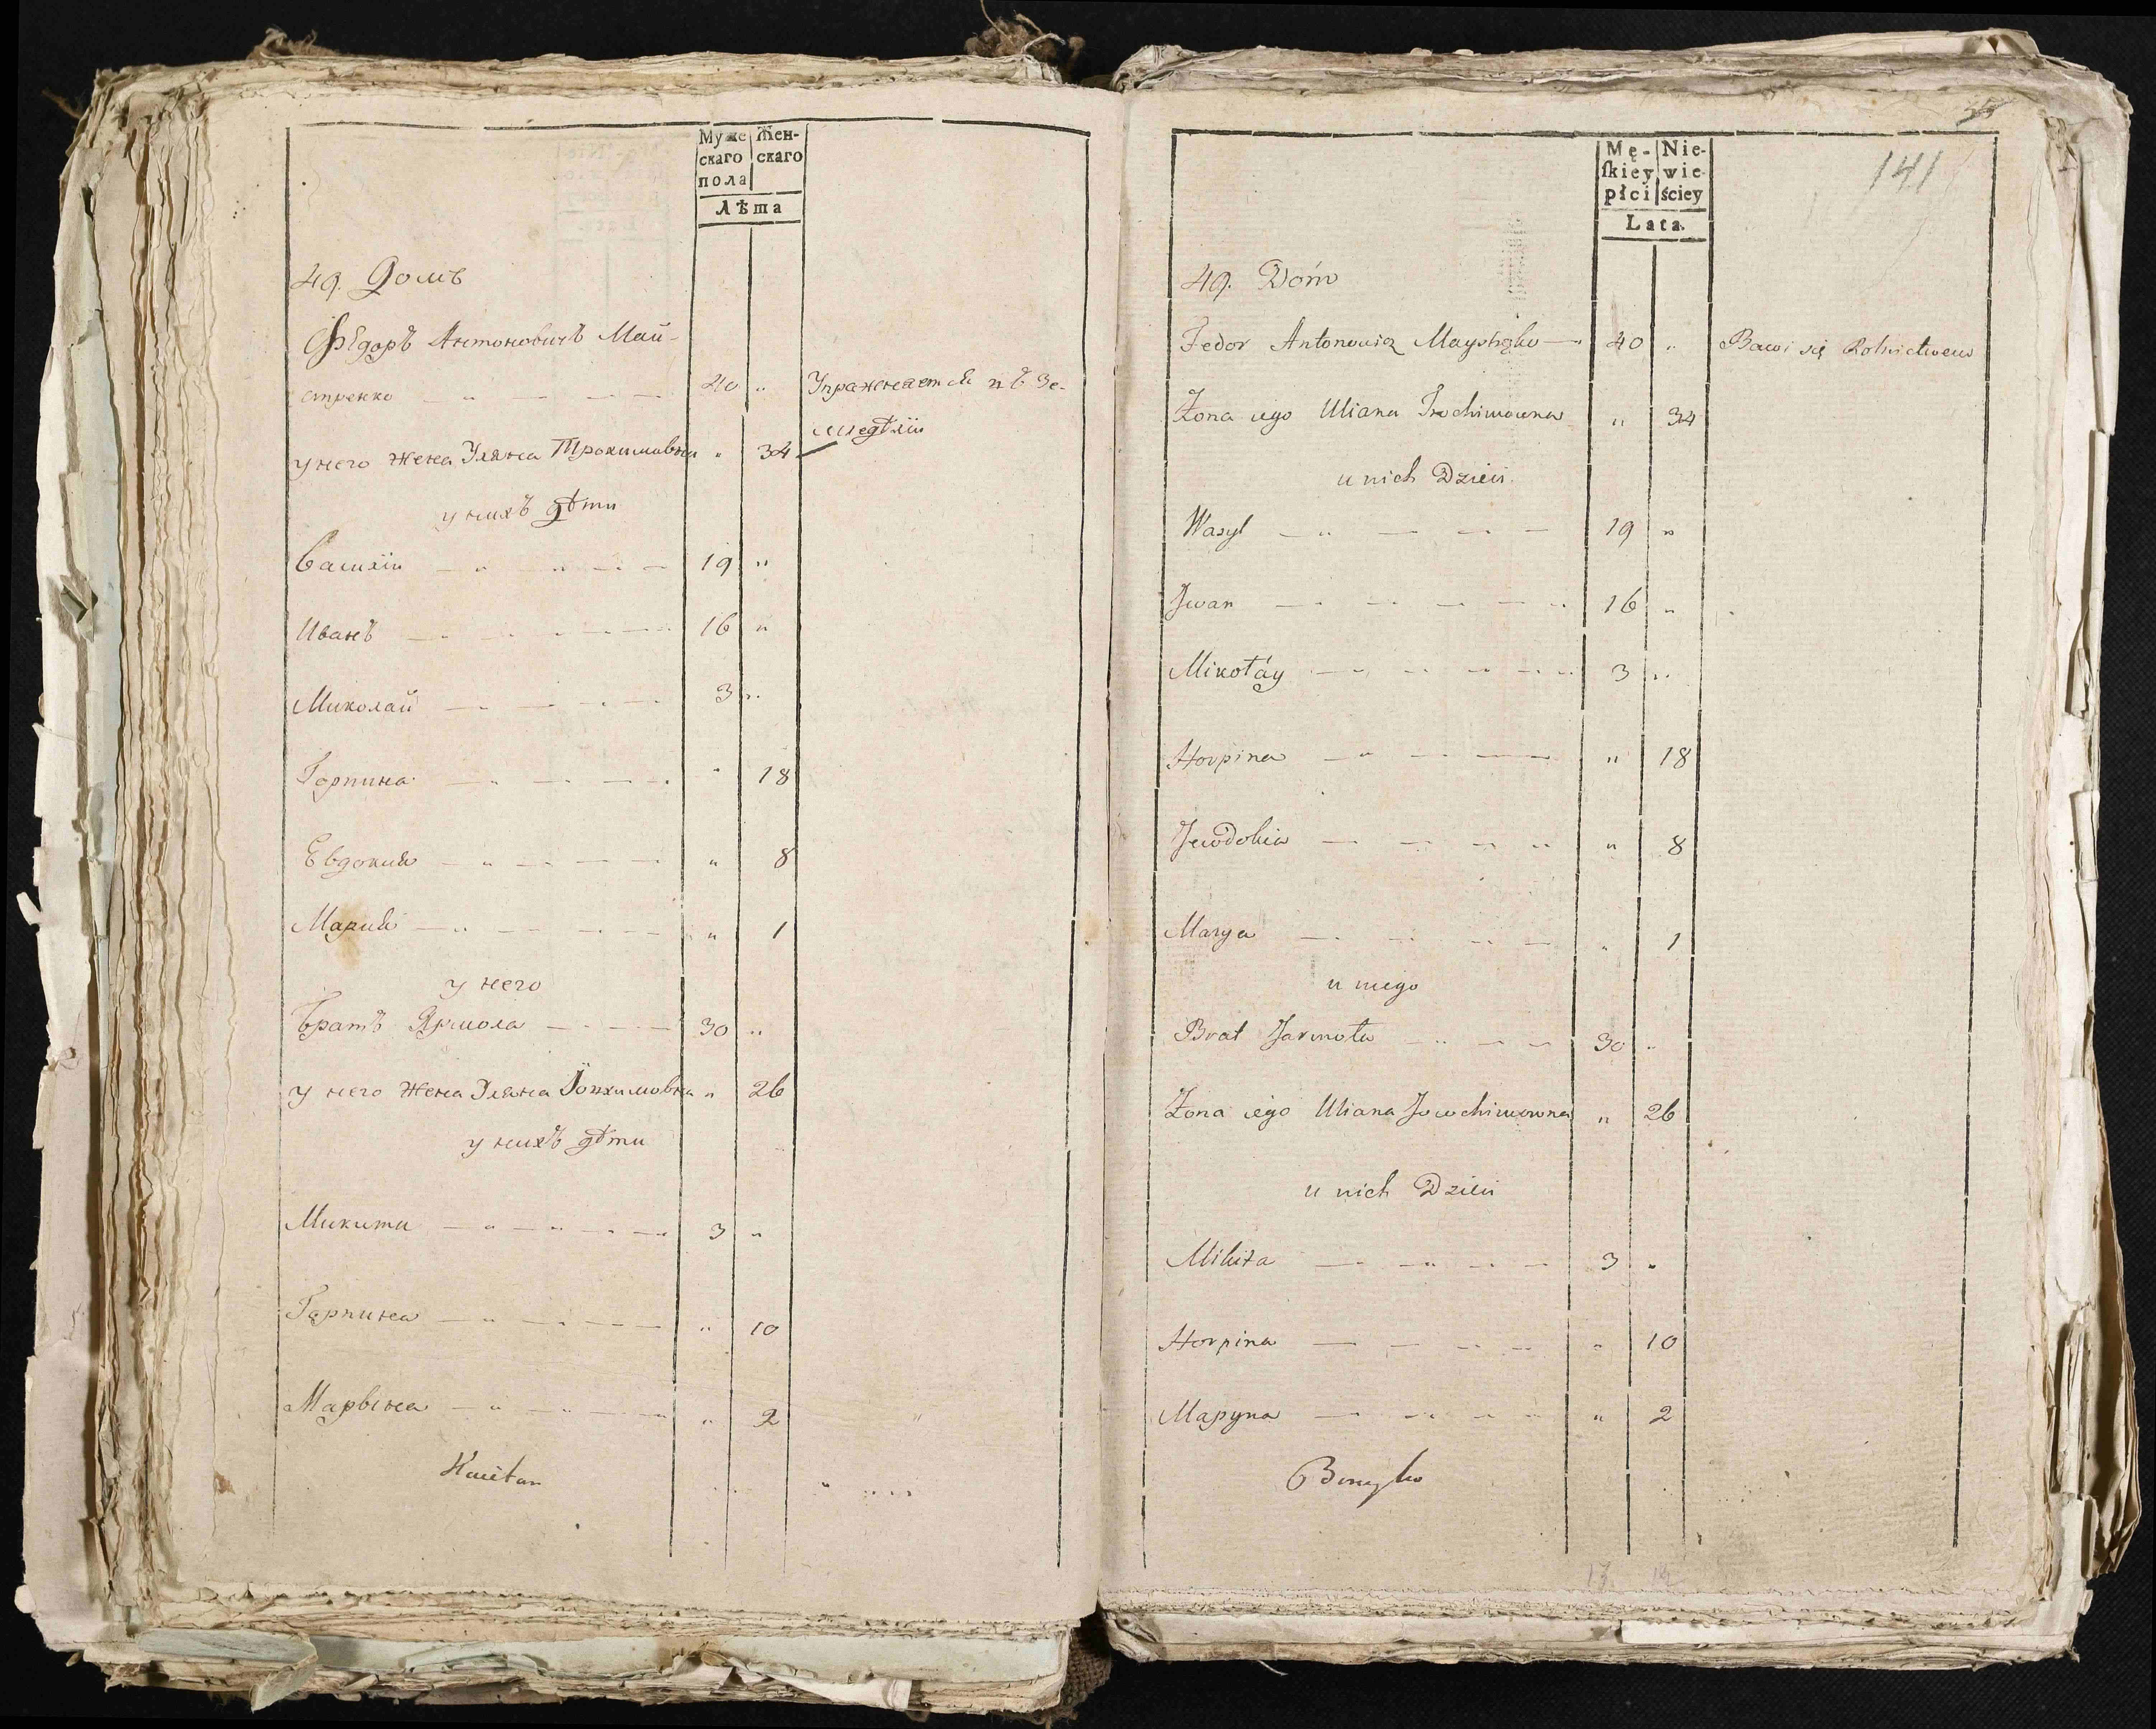 Муже Жен-
скаго скаго
пола
Лѣта
49. Домъ
Фѣдоръ Антоновичъ Май-
стренко 40 " Упражняется в Зе-
мледѣлiи
у него жена Уляна Трохимовна " 34
у нихъ дѣти
Василiй 19 "
Иванъ 16 "
Миколай 3 "
Горпина " 18
Евдокия " 8
Мария " 1
у него
Братъ Ярмола 30 "
у него жена Уляна Iовхимовна " 26
у нихъ дѣти
Микита 3 "
Гарпина " 10
Марына " 2
141
Mę- Nie-
skiey wie-
płci ściey
Lata.
49. Dóm
Fedor Antonowicz 40 " Bawi się Rolnictwem
Żona iego Uliana Trochimowna " 34
u nich Dzieci
Wasyl 19 "
Jwan 16 "
Mikołáy 3 "
Horpina " 18
Jewdokia " 8
Marya " 1
u niego
Brat Jarmoła 30 "
Żona iego Uliana Jowchimowna " 26
u nich Dzieci
Mikita 3 "
Horpina " 10
Маруna " 2
13 12